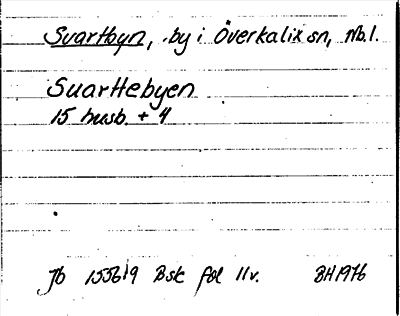 Svartbyn, by i Överkalix sn, Nb.l.
Suarttebyen
15 husb. + 4
Jb 1556:9 Bsk fol 11v. BH1976